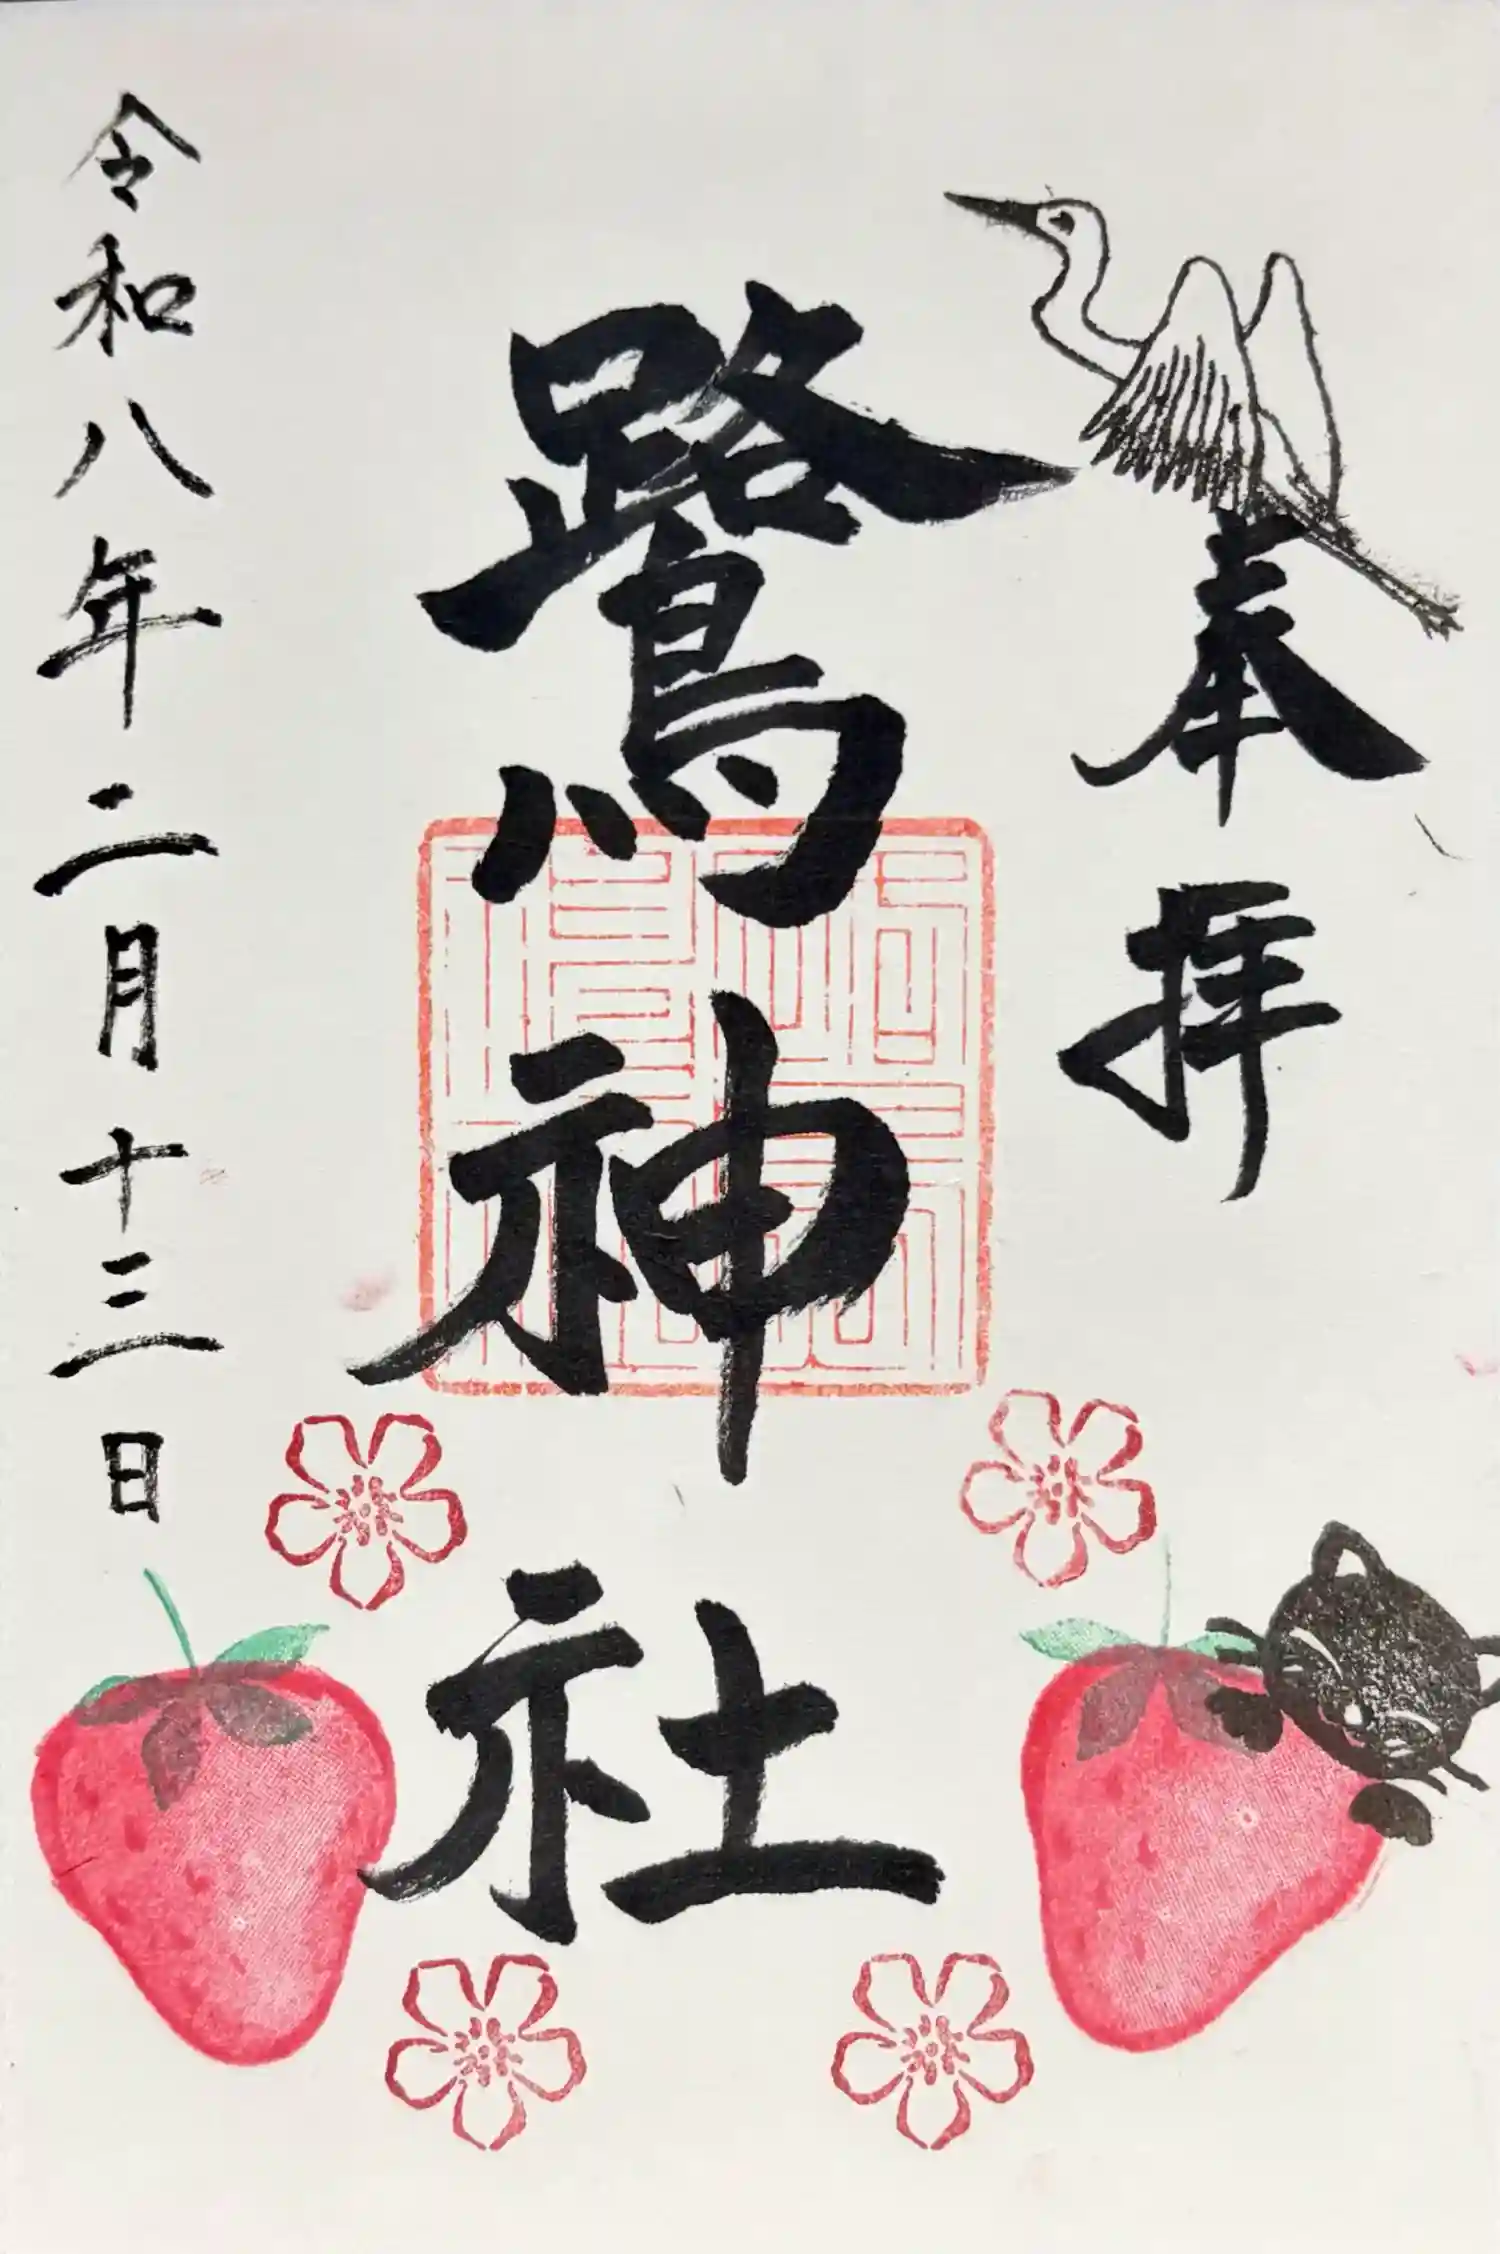 奉拝
鷺神社
令和八年二月十三日